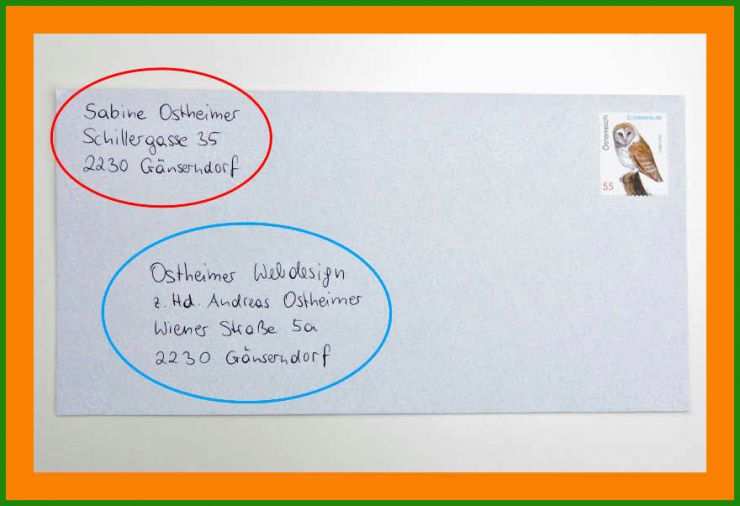 Sabine Ostheimer
Schillergasse 35
2230 Gänserndorf
Österreich
55
Ostheimer Webdesign
z. Hd. Andreas Ostheimer
Wiener Straße 5a
2230 Gänserndorf